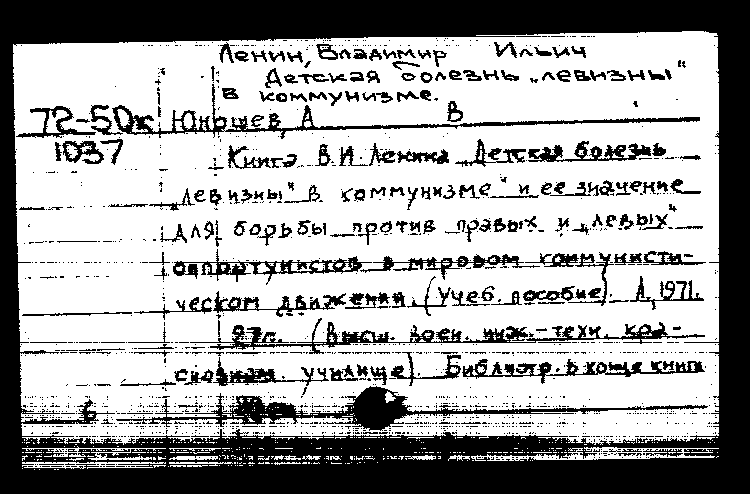 Ленин, Владимир Ильич
Детская болезнь „левизны"
в коммунизме.
72-50к Юношев, А В
1037
Книга В.И. Ленина „Детская болезнь
„левизны" в коммунизме" и ее значение
для борьбы против правых и „левых"
оппортунистов в мировом коммунисти-
ческом движении. (Учеб. пособие). Л, 1971.
27с. (Высш. воен. инж.-техн. кра-
снознам. училище). Библиогр. в конце книги
6